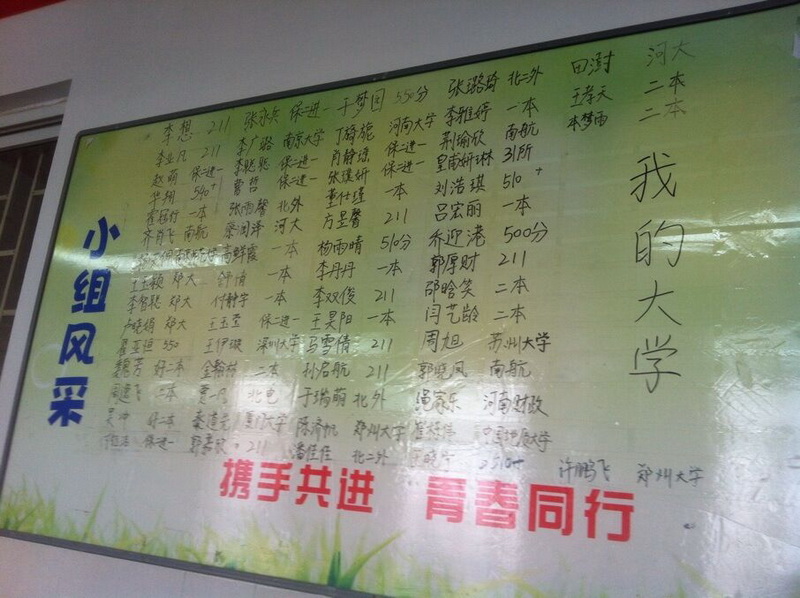 李想 211 张永兵 保二进一 于梦园 550分 张璐琦 北二外 田澍 河大
李业凡 211 李广路 南京大学 丁旖旎 河南大学 李雅婷 一本 王孝天 二本
赵萌 保二进一 李聪聪 保二进一 肖静琼 保二进一 荆瑜欣 南航 李梦雨 二本
华翔 540+ 曹哲 保二进一 张璞妍 保二进一 皇甫妍琳 31所
一本 张雨馨 北外 董仕瑾 一本 刘浩琪 510+
齐肖飞 南航 蔡润泽 河大 方昱馨 211 吕宏丽 一本
高鲜霞 一本 杨雨晴 510分 乔迎港 500分
王玉颖 郑大 舒倩 一本 李丹丹 一本 郭厚财 211
李智聪 郑大 付静宇 一本 李双俊 211 邵晗笑 二本
卢晓娟 郑大 王玉莹 保二进一 王昊阳 一本 闫艺龄 二本
550 王伊璇 深圳大学 马雪倩 211 周旭 苏州大学
魏芳 好二本 二本 孙启航 211 郭晓凤 南航
二本 北电 于瑞萌 北外 绳家乐 河南财政
吴冲 好二本 秦道元 厦门大学 陈济帆 郑州大学 中国地质大学
保二进一 211 潘佳佳 北二外 510+ 许鹏飞 郑州大学
我的大学
小组风采
携手共进 青春同行